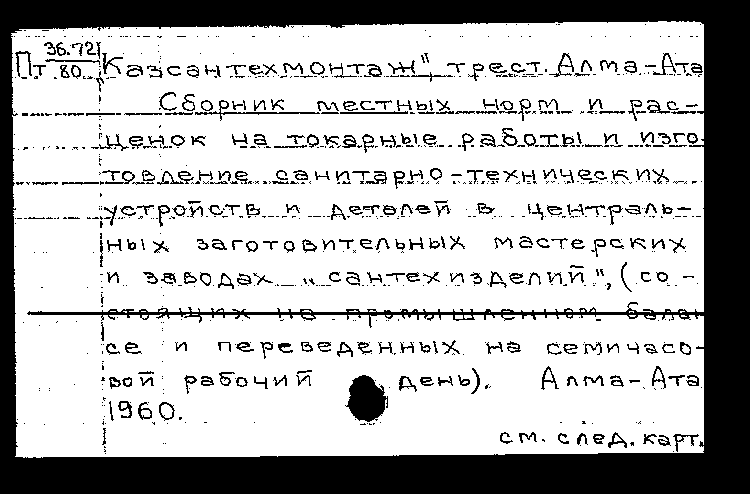 Пт 36.72/80 „Казсантехмонтаж", трест. Алма-Ата
Сборник местных норм и рас-
ценок на токарные работы и изго-
товление санитарно-технических
устройств и деталей в централь-
ных заготовительных мастерских
и заводах „сантехизделий", (со-
стоящих на промышленном балан-
се и переведенных на семичасо-
вой рабочий день). Алма-Ата
1960.
см. след. карт.